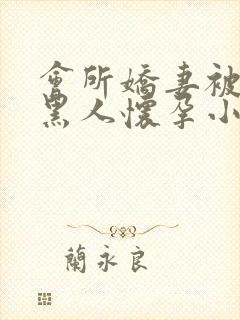 會所嬌妻被
黑人懷孕小
蘭永良